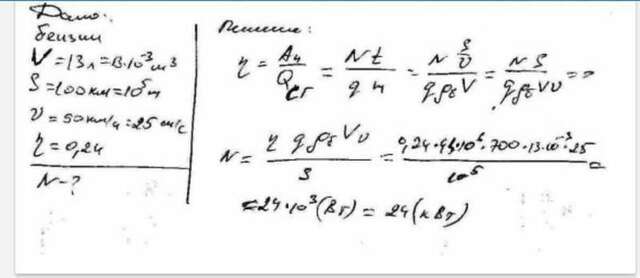 Дано:
бензин
V = 13 л = 13·10⁻³ м³
S = 100 км = 10⁵ м
υ = 90 км/ч = 25 м/с
η = 0,24
N - ?
Решение:
η = Aч / Qсг = Nt / qm = N S/υ / qρбV = NS / qρбVυ =>
N = ηqρбVυ / S = 0,24·46·10⁶·700·13·10⁻³·25 / 10⁵ =
= 24·10³ (Вт) = 24 (кВт)